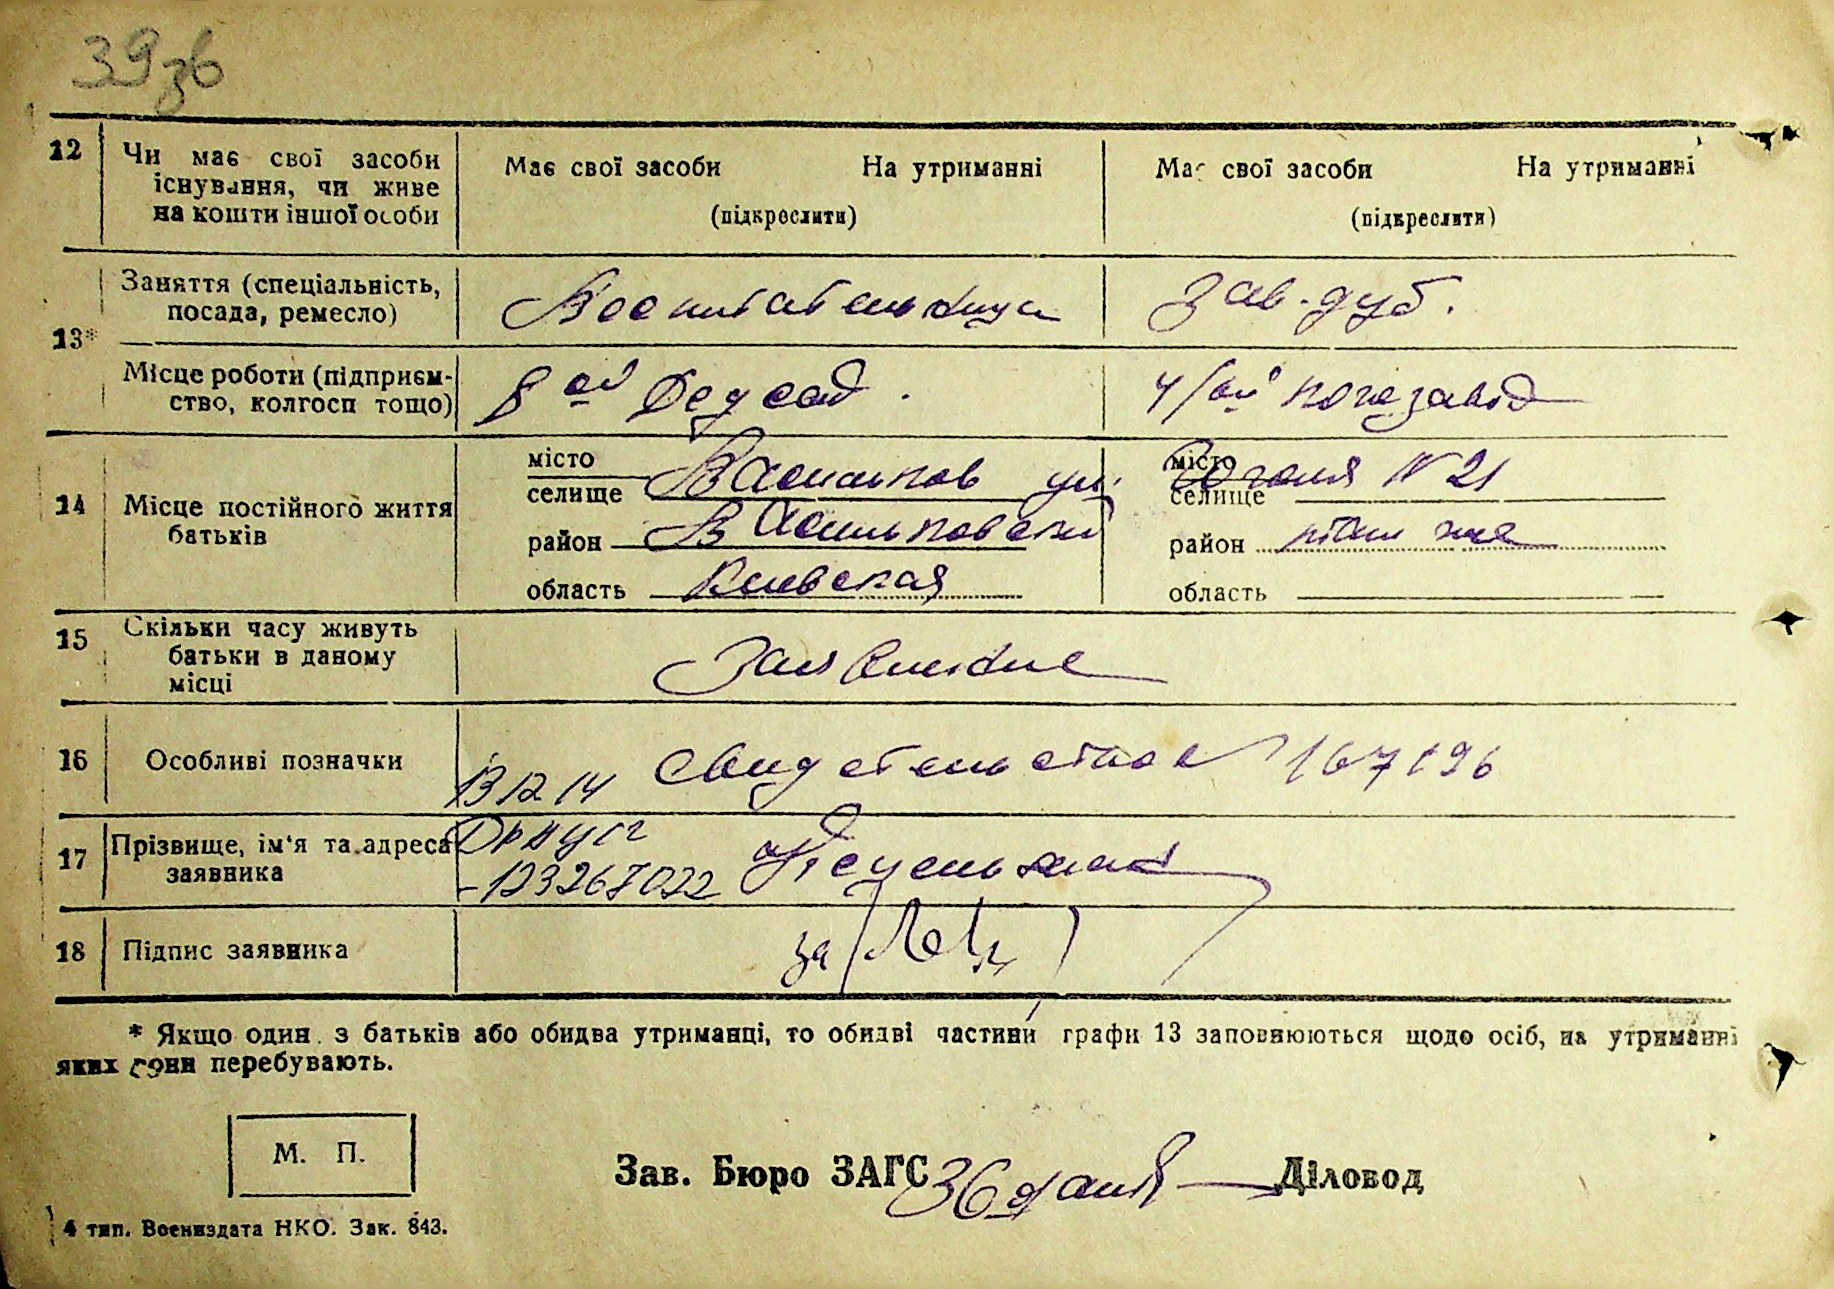 39зв
12 Чи має свої засоби існування, чи живе на кошти іншої особи
Має свої засоби На утриманні
(підкреслити)
Має свої засоби На утриманні
(підкреслити)
13*
Заняття (спеціальність, посада, ремесло)
Воспитательница
Зав. дуб.
Місце роботи (підприємство, колгосп тощо)
8 ой Дедсад.
4/ый кожзавод
14 Місце постійного життя батьків
місто
селище Васильков ул.
район Васильковский
область Киевская
місто
селище Гоголя N 21
район там же
область
15 Скільки часу живуть батьки в даному місці
16 Особливі позначки
Свидетельство N 167196
13 12 14
17 Прізвище, ім'я та адреса заявника
-123267022
18 Підпис заявника
за
* Якщо один з батьків або обидва утриманці, то обидві частини графи 13 заповнюються щодо осіб, на утриманні
яких вони перебувають.
М. П.
Зав. Бюро ЗАГС Діловод
4 тип. Воениздата НКО. Зак. 843.